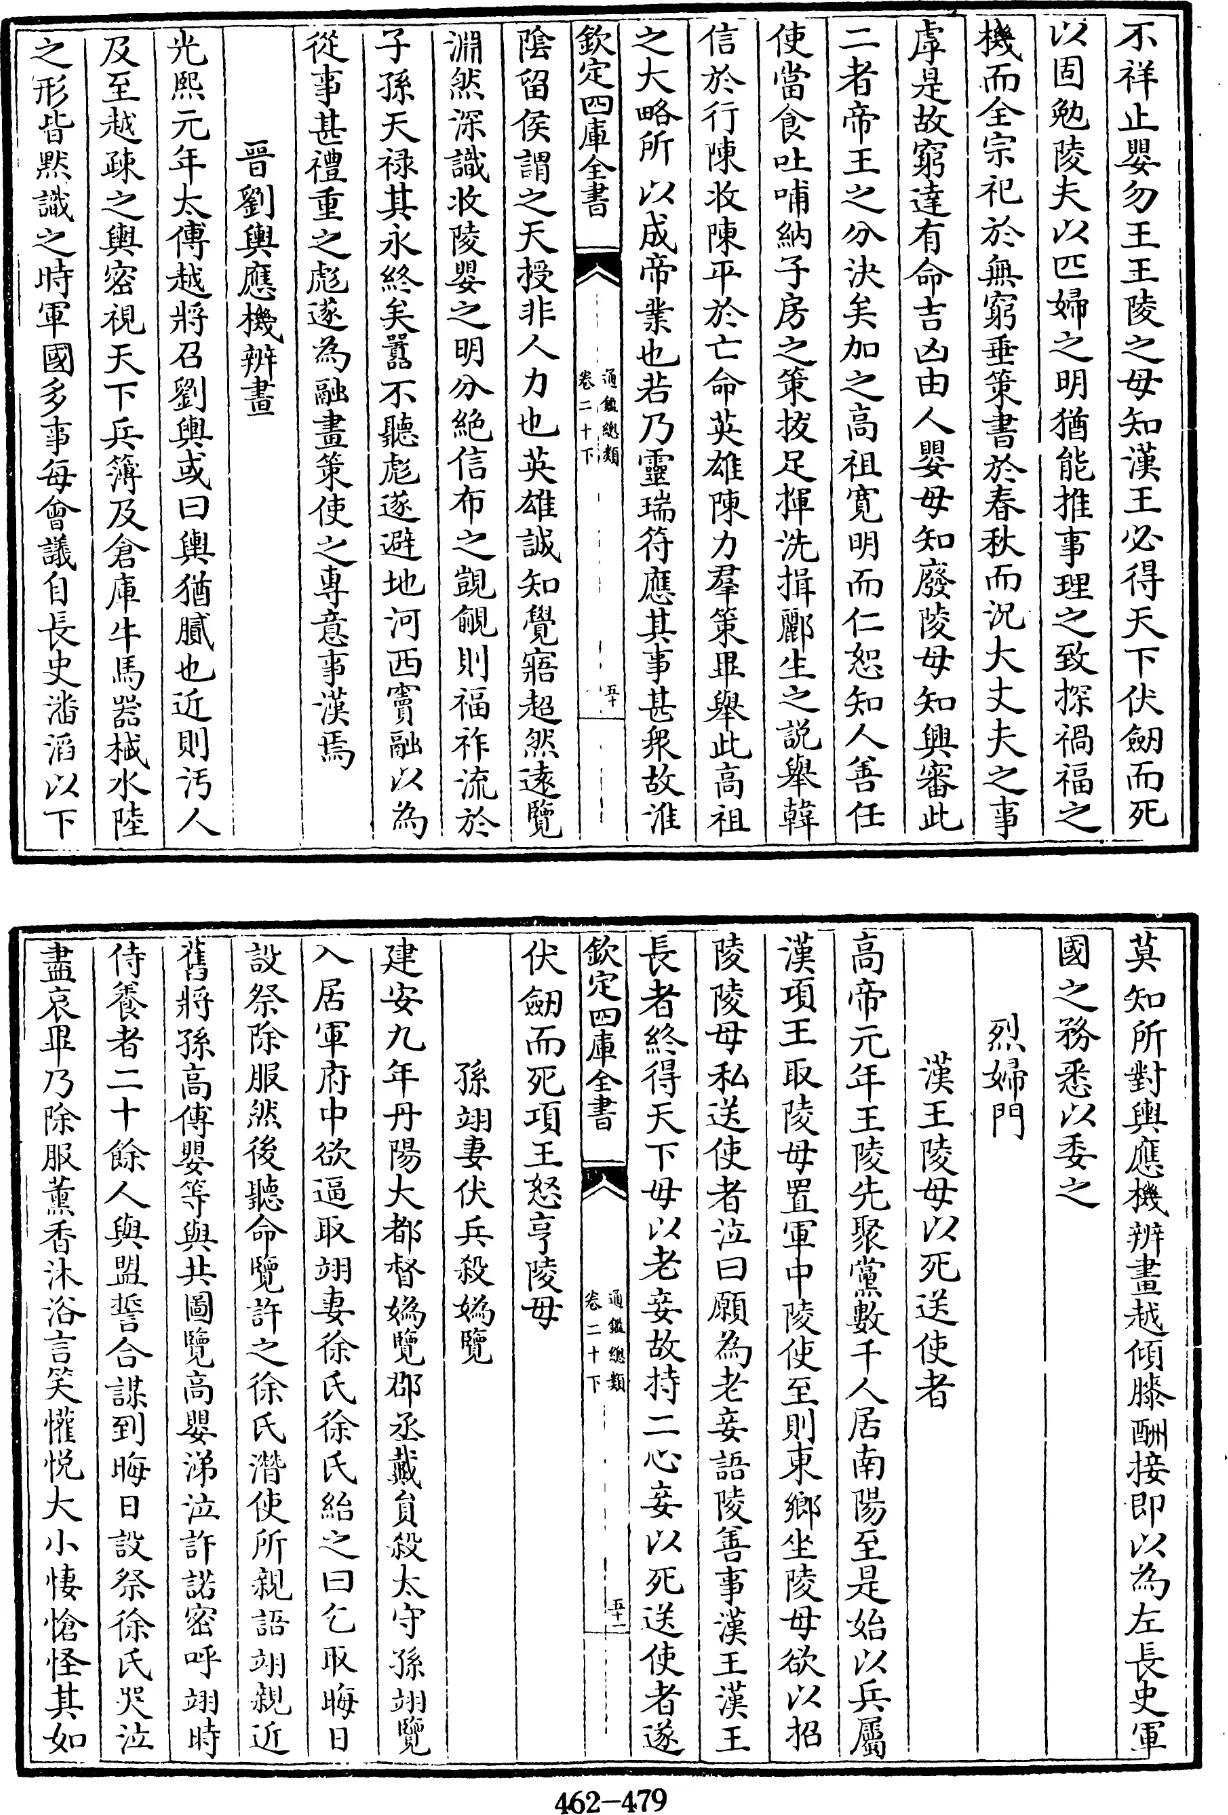 不祥止嬰勿王王陵之母知漢王必得天下伏劒而死
以固勉陵夫以匹婦之明猶能推事理之致探禍福之
機而全宗祀於無窮垂策書於春秋而況大丈夫之事
虖是故窮達有命吉凶由人嬰母知廢陵母知興審此
二者帝王之分決矣加之高祖寛明而仁恕知人善任
使當食吐哺納子房之策拔足揮洗揖酈生之説舉韓
信於行陳收陳平於亡命英雄陳力羣策畢舉此高祖
之大略所以成帝業也若乃靈瑞符應其事甚衆故淮
欽定四庫全書
通鑑總類
卷二十下
五十
陰留侯謂之天授非人力也英雄誠知覺寤超然逺覽
淵然深識收陵嬰之明分絶信布之覬覦則福祚流於
子孫天禄其永終矣囂不聽彪遂避地河西竇融以為
從事甚禮重之彪遂為融畫策使之專意事漢焉
晉劉輿應機辨畫
光熙元年太傅越將召劉輿或曰輿猶膩也近則汚人
及至越疎之輿密視天下兵簿及倉庫牛馬器械水陸
之形皆黙識之時軍國多事每會議自長史潘滔以下
莫知所對輿應機辨畫越傾膝酬接即以為左長史軍
國之務悉以委之
烈婦門
漢王陵母以死送使者
高帝元年王陵先聚黨數千人居南陽至是始以兵屬
漢項王取陵母置軍中陵使至則東鄉坐陵母欲以招
陵陵母私送使者泣曰願為老妾語陵善事漢王漢王
長者終得天下毋以老妾故持二心妾以死送使者遂
欽定四庫全書
通鑑總類
卷二十下
五十一
伏劒而死項王怒亨陵母
孫翊妻伏兵殺媯覽
建安九年丹陽大都督媯覽郡丞戴員殺太守孫翊覽
入居軍府中欲逼取翊妻徐氏徐氏紿之曰乞取晦日
設祭除服然後聽命覽許之徐氏潛使所親語翊親近
舊將孫高傅嬰等與共圖覽高嬰涕泣許諾密呼翊時
侍養者二十餘人與盟誓合謀到晦日設祭徐氏哭泣
盡哀畢乃除服薰香沐浴言笑懽悦大小悽愴怪其如
462-479